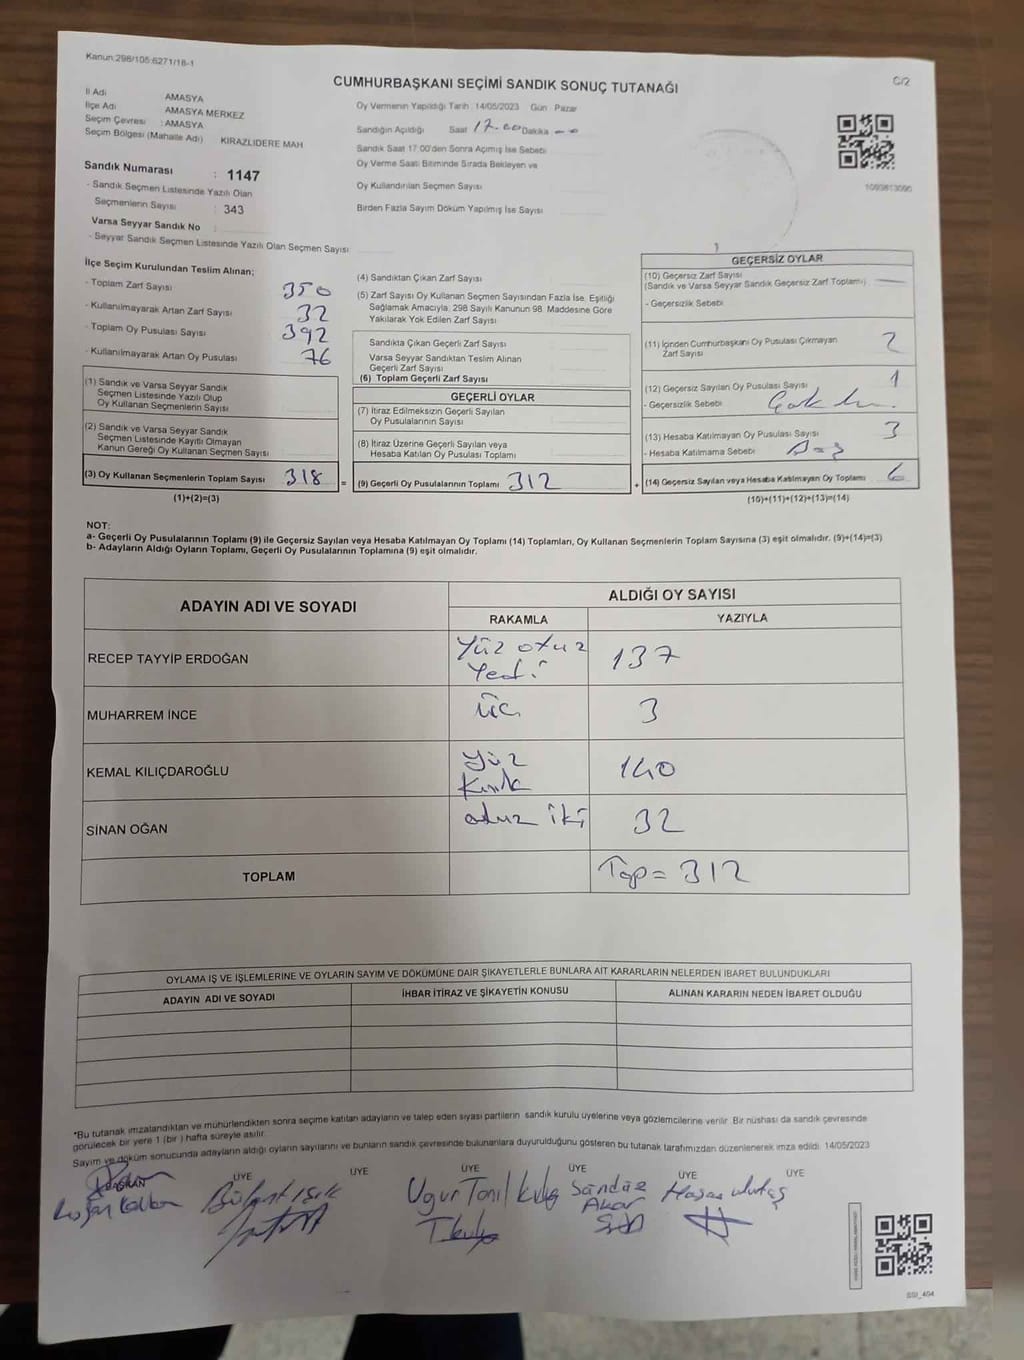 Kanun:298/105:6271/18-1
CUMHURBAŞKANI SEÇİMİ SANDIK SONUÇ TUTANAĞI
C/2
İl Adı AMASYA
İlçe Adı AMASYA MERKEZ
Seçim Çevresi : AMASYA
Seçim Bölgesi (Mahalle Adı) KIRAZLIDERE MAH
Sandık Numarası : 1147
- Sandık Seçmen Listesinde Yazılı Olan
Seçmenlerin Sayısı : 343
Varsa Seyyar Sandık No :
- Seyyar Sandık Seçmen Listesinde Yazılı Olan Seçmen Sayısı
Oy Vermenin Yapıldığı Tarih :14/05/2023 Gün Pazar
Sandığın Açıldığı Saat 17.00 Dakika --
Sandık Saat 17:00'den Sonra Açımış İse Sebebi
Oy Verme Saati Bitiminde Sırada Bekleyen ve
Oy Kullandırılan Seçmen Sayısı
Birden Fazla Sayım Döküm Yapılmış İse Sayısı
1093813095
İlçe Seçim Kurulundan Teslim Alınan;
- Toplam Zarf Sayısı 350
- Kullanılmayarak Artan Zarf Sayısı 32
- Toplam Oy Pusulası Sayısı 392
- Kullanılmayarak Artan Oy Pusulası 76
(1) Sandık ve Varsa Seyyar Sandık
Seçmen Listesinde Yazılı Olup
Oy Kullanan Seçmenlerin Sayısı
(2) Sandık ve Varsa Seyyar Sandık
Seçmen Listesinde Kayıtlı Olmayan
Kanun Gereği Oy Kullanan Seçmen Sayısı
(3) Oy Kullanan Seçmenlerin Toplam Sayısı 318 =
(1)+(2)=(3)
(4) Sandıktan Çıkan Zarf Sayısı
(5) Zarf Sayısı Oy Kullanan Seçmen Sayısından Fazla İse, Eşitliği
Sağlamak Amacıyla, 298 Sayılı Kanunun 98. Maddesine Göre
Yakılarak Yok Edilen Zarf Sayısı
Sandıkta Çıkan Geçerli Zarf Sayısı
Varsa Seyyar Sandıktan Teslim Alınan
Geçerli Zarf Sayısı
(6) Toplam Geçerli Zarf Sayısı
GEÇERLİ OYLAR
(7) İtiraz Edilmeksizin Geçerli Sayılan
Oy Pusulalarının Sayısı
(8) İtiraz Üzerine Geçerli Sayılan veya
Hesaba Katılan Oy Pusulası Toplamı
(9) Geçerli Oy Pusulalarının Toplamı 312 +
GEÇERSİZ OYLAR
(10) Geçersiz Zarf Sayısı
(Sandık ve Varsa Seyyar Sandık Geçersiz Zarf Toplamı)
- Geçersizlik Sebebi
(11) İçinden Cumhurbaşkanı Oy Pusulası Çıkmayan
Zarf Sayısı 2
(12) Geçersiz Sayılan Oy Pusulası Sayısı 1
- Geçersizlik Sebebi
(13) Hesaba Katılmayan Oy Pusulası Sayısı 3
- Hesaba Katılmama Sebebi
(14) Geçersiz Sayılan veya Hesaba Katılmayan Oy Toplamı 6
(10)+(11)+(12)+(13)=(14)
NOT:
a- Geçerli Oy Pusulalarının Toplamı (9) ile Geçersiz Sayılan veya Hesaba Katılmayan Oy Toplamı (14) Toplamları, Oy Kullanan Seçmenlerin Toplam Sayısına (3) eşit olmalıdır. (9)+(14)=(3)
b- Adayların Aldığı Oyların Toplamı, Geçerli Oy Pusulalarının Toplamına (9) eşit olmalıdır.
ADAYIN ADI VE SOYADI ALDIĞI OY SAYISI
RAKAMLA YAZIYLA
RECEP TAYYİP ERDOĞAN Yüz otuz yedi 137
MUHARREM İNCE üç 3
KEMAL KILIÇDAROĞLU yüz kırk 140
SİNAN OĞAN otuz iki 32
TOPLAM Top= 312
OYLAMA İŞ VE İŞLEMLERİNE VE OYLARIN SAYIM VE DÖKÜMÜNE DAİR ŞİKAYETLERLE BUNLARA AİT KARARLARIN NELERDEN İBARET BULUNDUKLARI
ADAYIN ADI VE SOYADI İHBAR İTİRAZ VE ŞİKAYETİN KONUSU ALINAN KARARIN NEDEN İBARET OLDUĞU
*Bu tutanak imzalandıktan ve mühürlendikten sonra seçime katılan adayların ve talep eden siyasi partilerin sandık kurulu üyelerine veya gözlemcilerine verilir. Bir nüshası da sandık çevresinde
görülecek bir yere 1 (bir) hafta süreyle asılır.
Sayım ve döküm sonucunda adayların aldığı oyların sayılarını ve bunların sandık çevresinde bulunanlara duyurulduğunu gösteren bu tutanak tarafımızdan düzenlenerek imza edildi. 14/05/2023
BAŞKAN ÜYE ÜYE ÜYE ÜYE ÜYE ÜYE
Bülent Işık Uğur Tanıl Kılıç Sündüz Acar Hasan Ulutaş
SSI_404